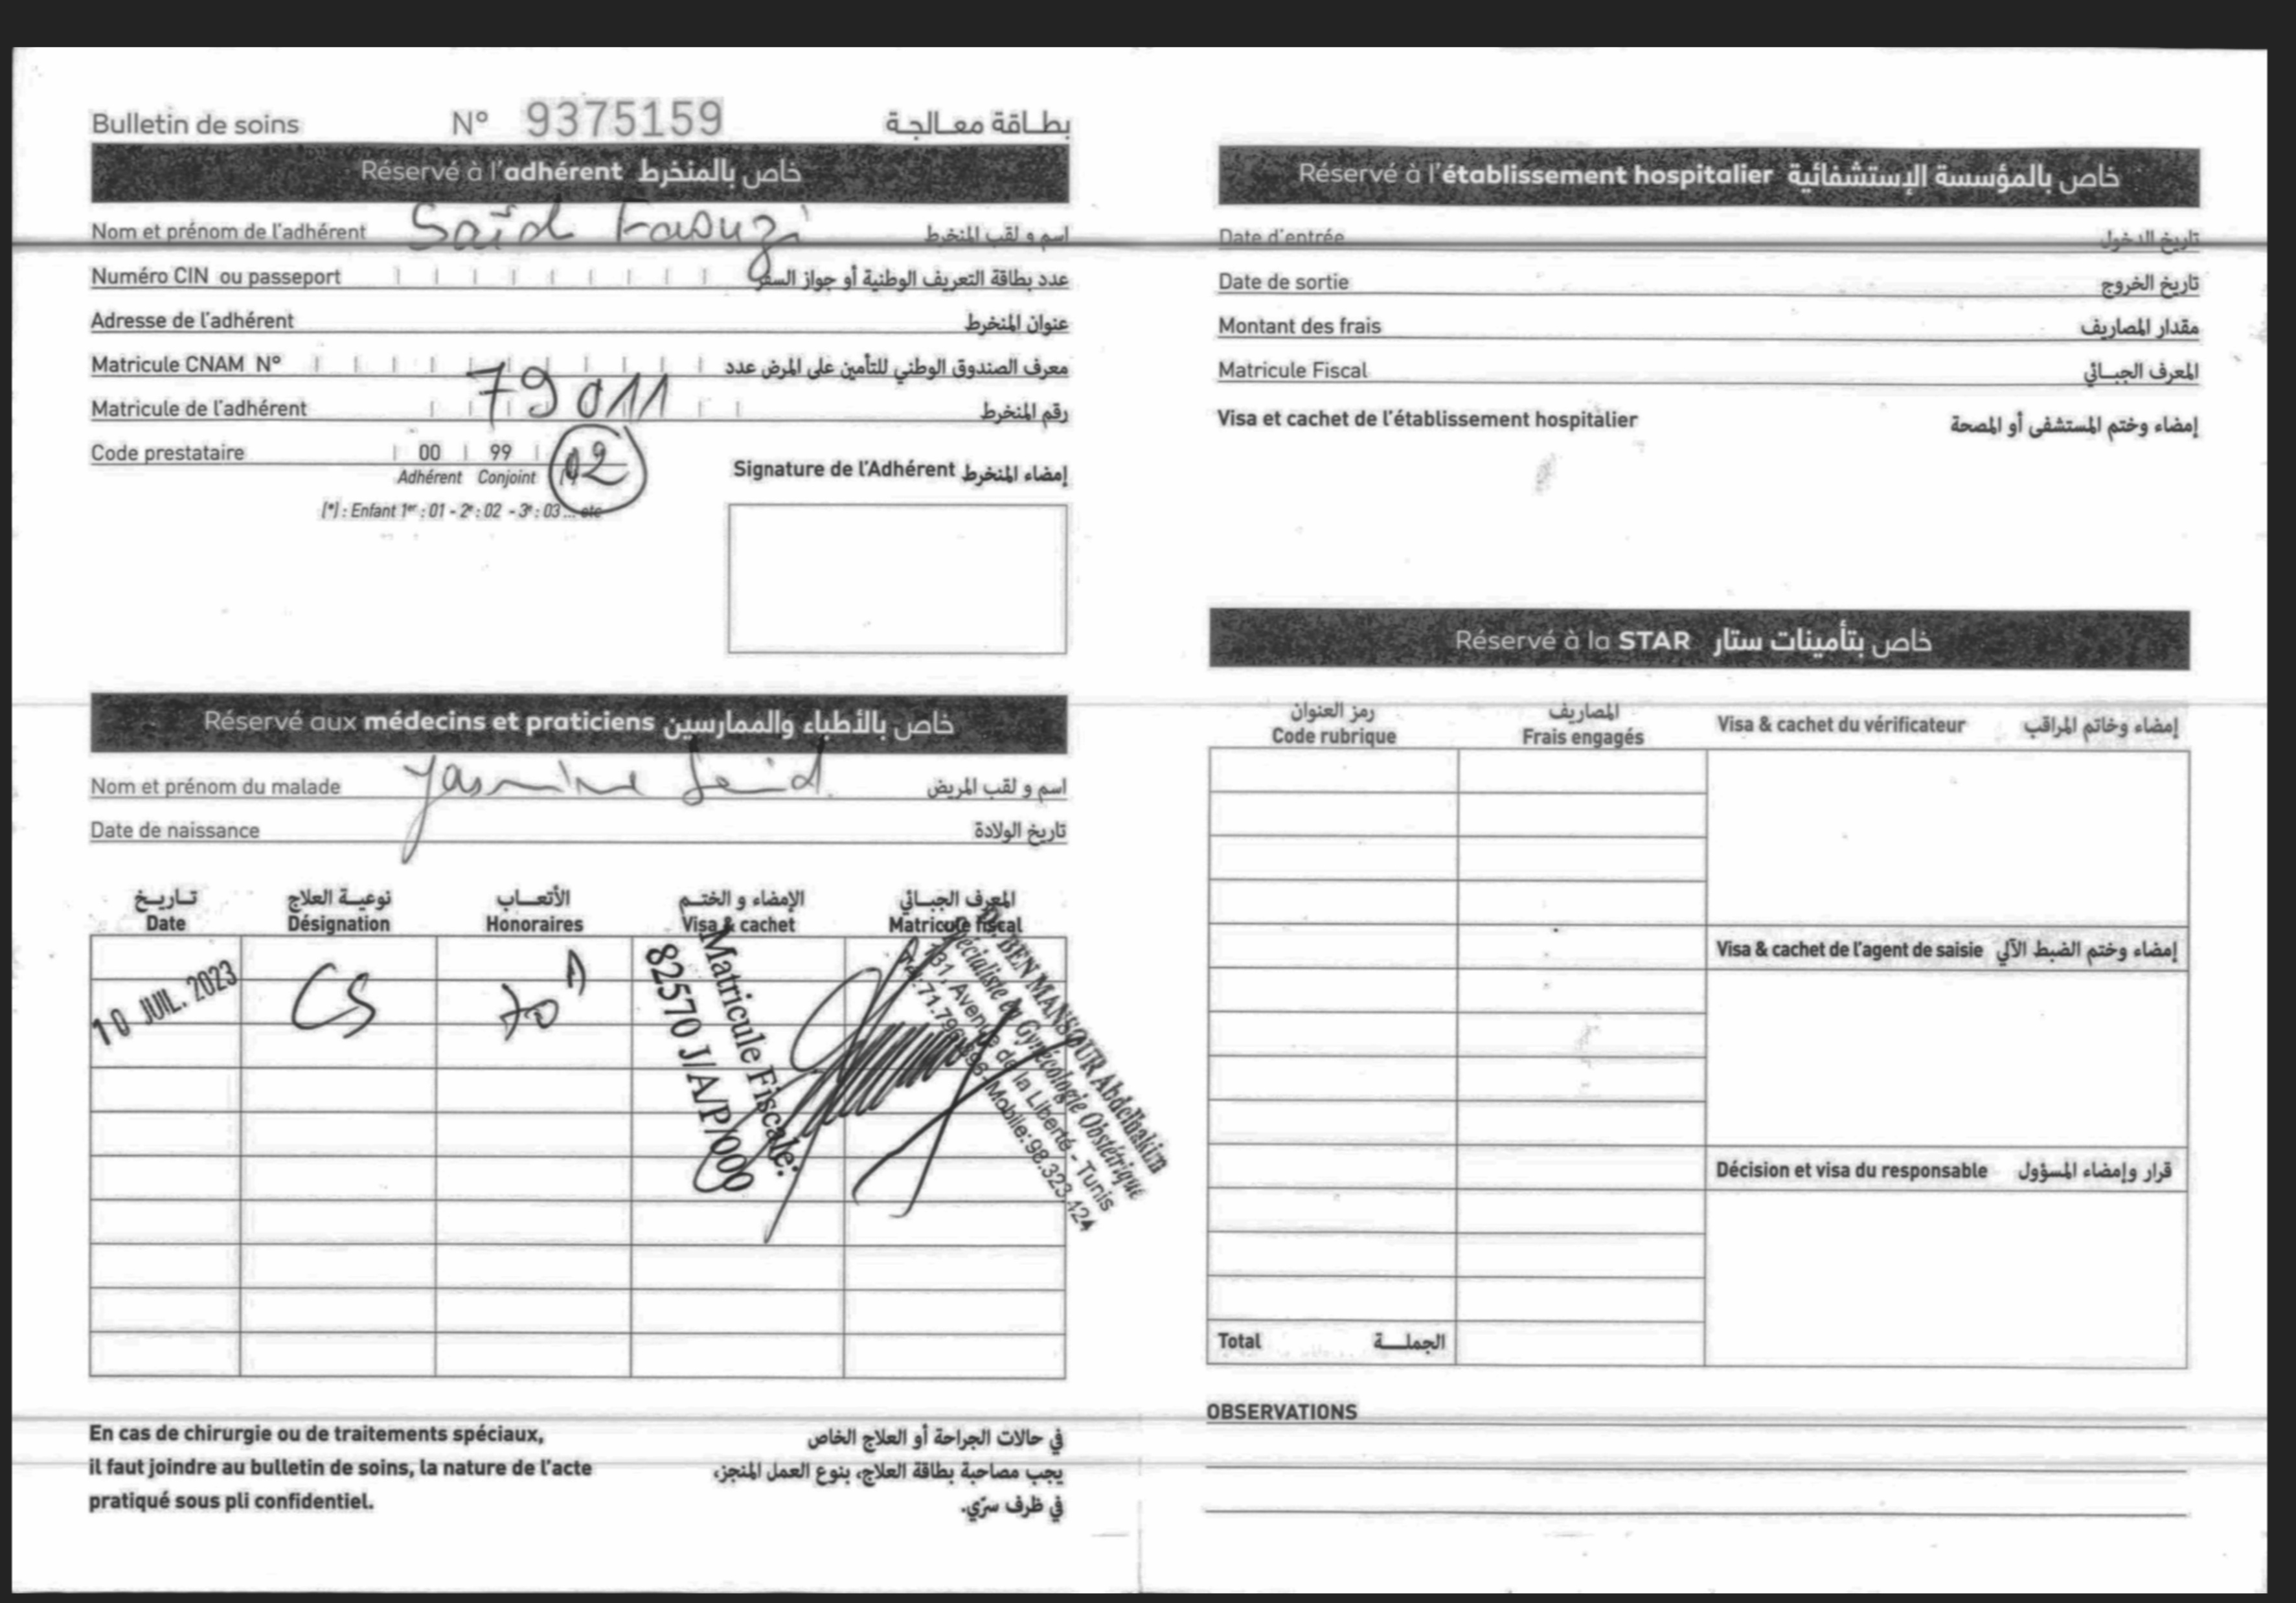 Bulletin de soins N° 9375159 بطاقة معالجة
Réservé à l'adhérent خاص بالمنخرط
Nom et prénom de l'adhérent Saïd Faouzi اسم و لقب المنخرط
Numéro CIN ou passeport عدد بطاقة التعريف الوطنية أو جواز السفر
Adresse de l'adhérent عنوان المنخرط
Matricule CNAM N° معرف الصندوق الوطني للتأمين على المرض عدد
Matricule de l'adhérent 79011 رقم المنخرط
Code prestataire 00 99 02
Adhérent Conjoint
(*) : Enfant 1er : 01 - 2e : 02 - 3e : 03 ... etc
Signature de l'Adhérent إمضاء المنخرط
Réservé aux médecins et praticiens خاص بالأطباء والممارسين
Nom et prénom du malade Yasmine Said اسم و لقب المريض
Date de naissance تاريخ الولادة
تاريخ نوعية العلاج الأتعاب الإمضاء و الختم المعرف الجبائي
Date Désignation Honoraires Visa & cachet Matricule fiscal
10 JUIL. 2023 CS 70
Matricule Fiscale:
82570 J/A/P/000
BEN MANSOUR Abdelhakim
Spécialiste en Gynécologie Obstétrique
131, Avenue de la Liberté - Tunis
Mobile: 98.323.424
En cas de chirurgie ou de traitements spéciaux,
il faut joindre au bulletin de soins, la nature de l'acte
pratiqué sous pli confidentiel.
في حالات الجراحة أو العلاج الخاص
يجب مصاحبة بطاقة العلاج، بنوع العمل المنجز،
في ظرف سرّي.
Réservé à l'établissement hospitalier خاص بالمؤسسة الإستشفائية
Date d'entrée تاريخ الدخول
Date de sortie تاريخ الخروج
Montant des frais مقدار المصاريف
Matricule Fiscal المعرف الجبائي
Visa et cachet de l'établissement hospitalier إمضاء وختم المستشفى أو المصحة
Réservé à la STAR خاص بتأمينات ستار
رمز العنوان المصاريف
Code rubrique Frais engagés Visa & cachet du vérificateur إمضاء وخاتم المراقب
Visa & cachet de l'agent de saisie إمضاء وختم الضبط الآلي
Décision et visa du responsable قرار وإمضاء المسؤول
Total الجملة
OBSERVATIONS